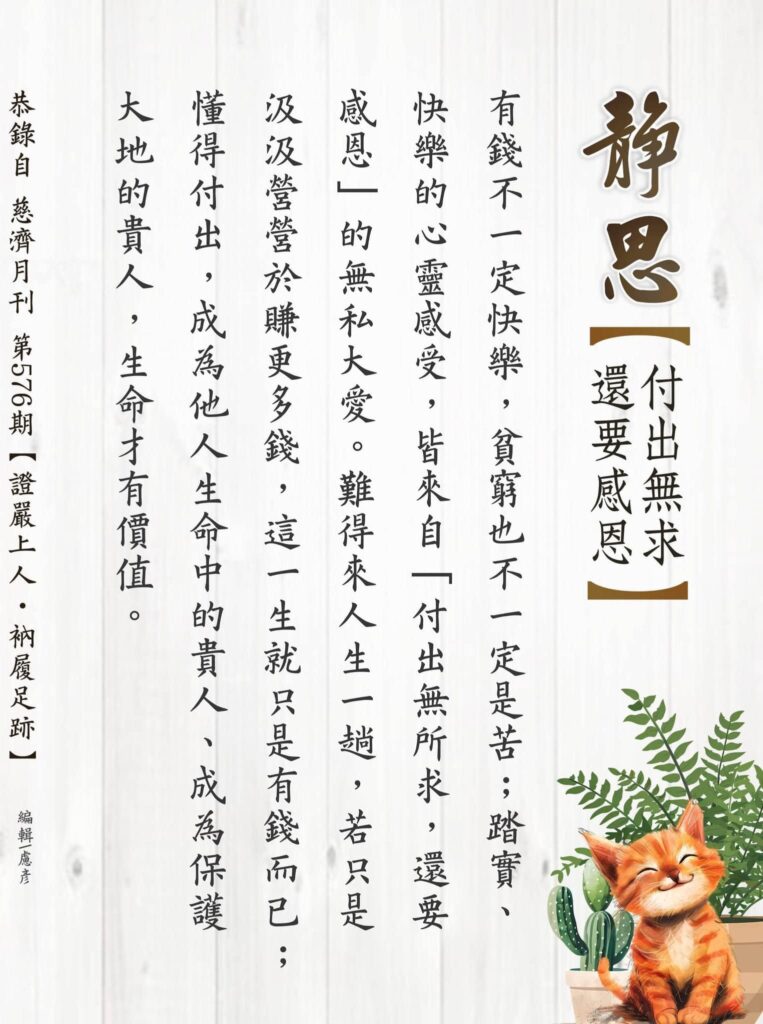 静思
【付出無求
還要感恩】
有錢不一定快樂，貧窮也不一定是苦；踏實、
快樂的心靈感受，皆來自「付出無所求，還要
感恩」的無私大愛。難得來人生一趟，若只是
汲汲營營於賺更多錢，這一生就只是有錢而已；
懂得付出，成為他人生命中的貴人、成為保護
大地的貴人，生命才有價值。
恭錄自 慈濟月刊 第576期【證嚴上人・衲履足跡】
編輯｜慮彥